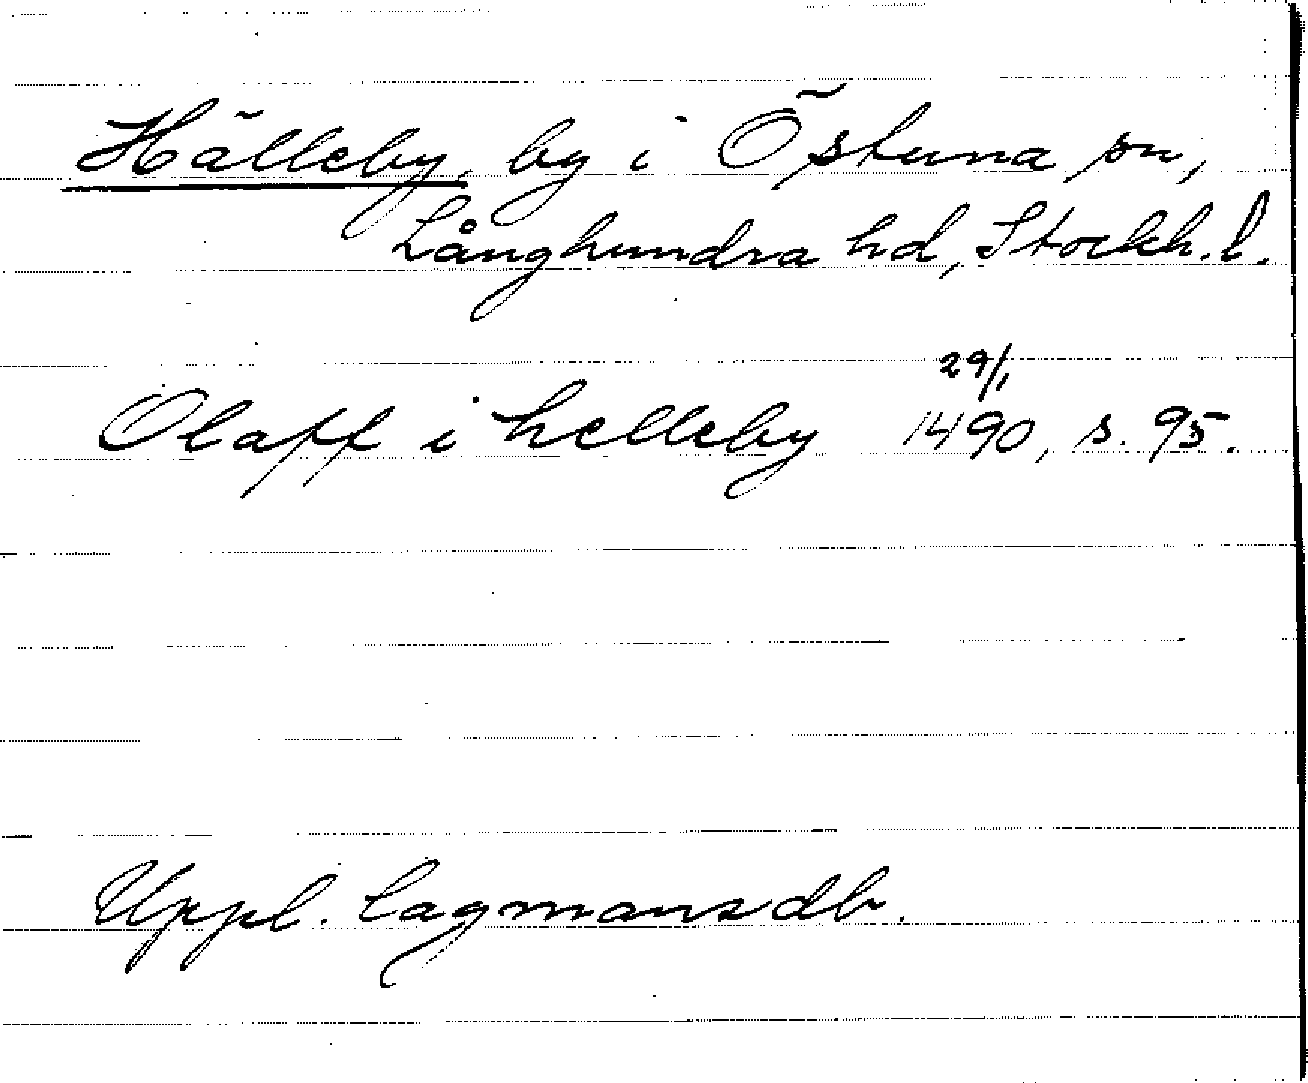 Hälleby, by i Östuna sn,
Långhundra hd, Stockh. l.
Olaff i helleby 29/1 1490, s. 95.
Uppl. lagmansdb.